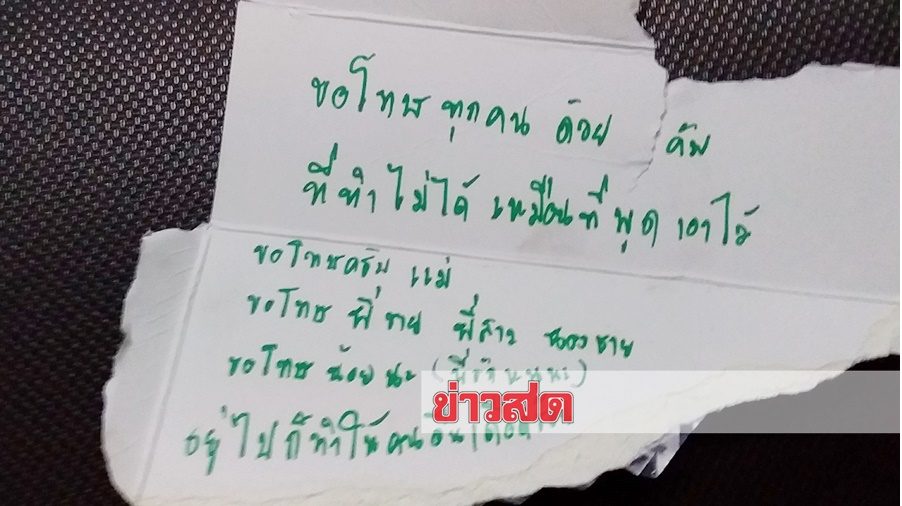 ขอโทษทุกคน ด้วย คับ
ที่ทำไม่ได้ เหมือนที่พูด เอาไว้
ขอโทษครับ แม่
ขอโทษ พี่ชาย พี่สาว น้องชาย
ขอโทษ น้อยนะ
อยู่ไปก็ทำให้คนอื่นเดือด
ข่าวสด